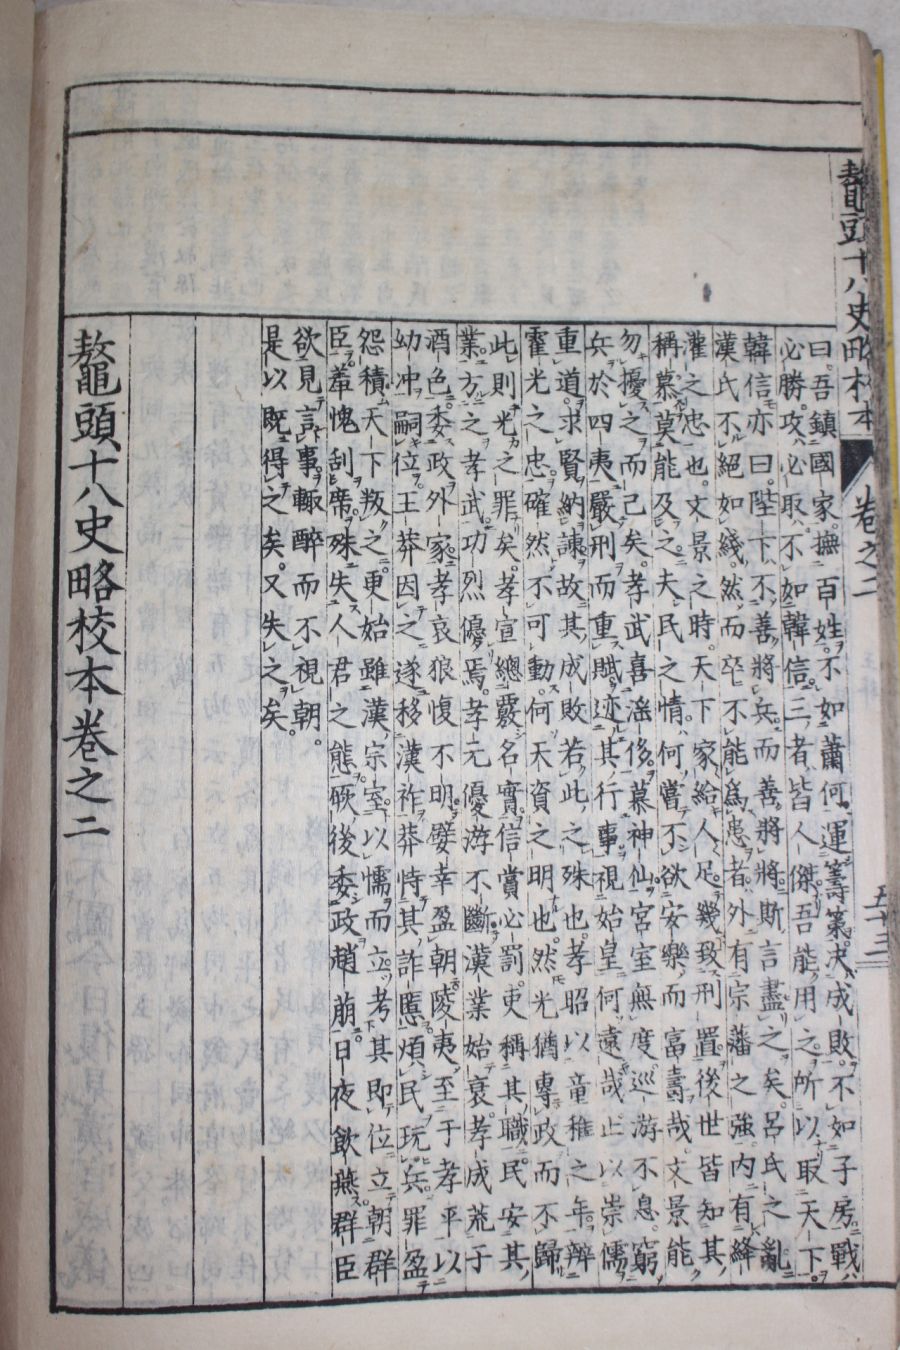 鼇頭十八史略校本
卷之二
五十三
曰吾鎮國家撫百姓不如蕭何運籌策決成敗不如子房戰
必勝攻必取不如韓信三者皆人傑吾能用之所以取天下
韓信亦曰陛下不善將兵而善將將斯言盡之矣呂氏之亂
漢氏不絕如綫然而卒不能爲患者外有宗藩之強內有絳
灌之忠也文景之時天下家給人足幾致刑置後世皆知其
稱慕莫能及之夫民之情何嘗不欲安樂而富壽哉文景能
勿擾之而己矣孝武喜淫侈慕神仙宮室無度巡游不息窮
兵於四夷嚴刑而重賦迹其行事視始皇何遠哉止以崇儒
重道求賢納諫故其成敗若此之殊也孝昭以童稚之年辨
霍光之忠確然不可動何天資之明也然光猶專政而不歸
此則光之罪矣孝宣總覈名實信賞必罰吏稱其職民安其
業方之孝武功烈優焉孝元優游不斷漢業始衰孝成荒于
酒色委政外家孝哀狼愎不明嬖幸盈朝陵夷至于孝平以
幼冲嗣位王莽因之遂移漢祚莽恃其詐慝煩民玩兵罪盈
怨積天下叛之更始雖漢宗室以懦而立考其即位立朝群
臣羞愧刮席殊失人君之態厥後委政趙萠日夜飲燕群臣
欲見言事輙醉而不視朝
是以既得之矣又失之矣
鼇頭十八史略校本卷之二